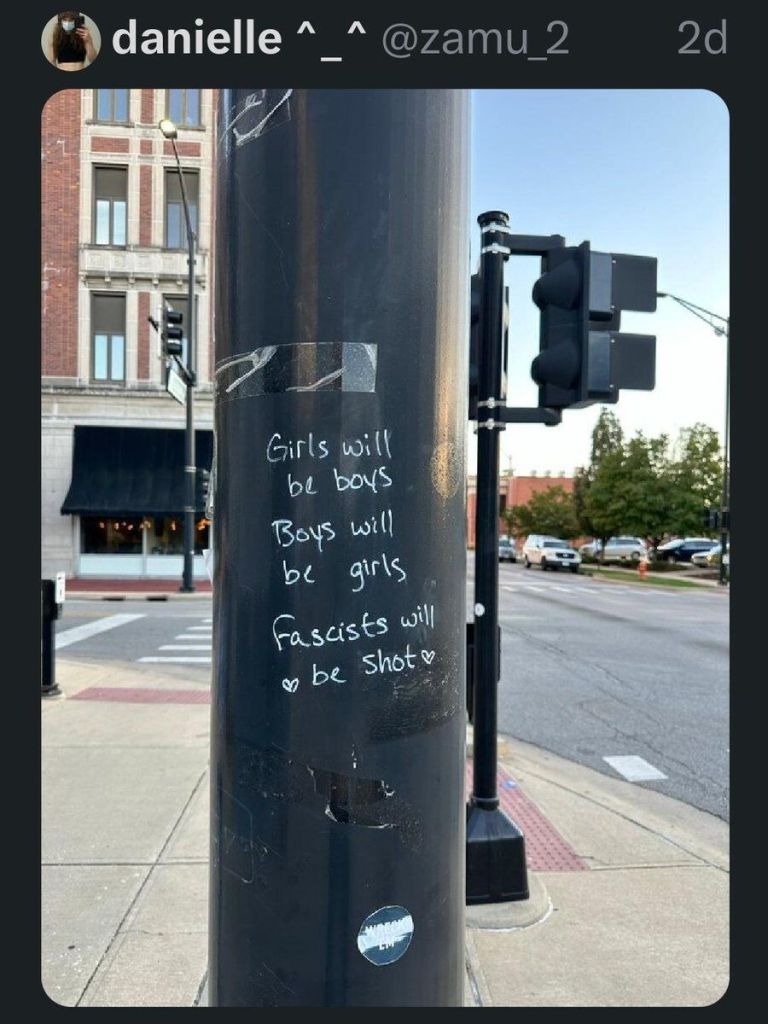 danielle ^_^ @zamu_2 2d
Girls will
be boys
Boys will
be girls
Fascists will
♥ be shot ♥